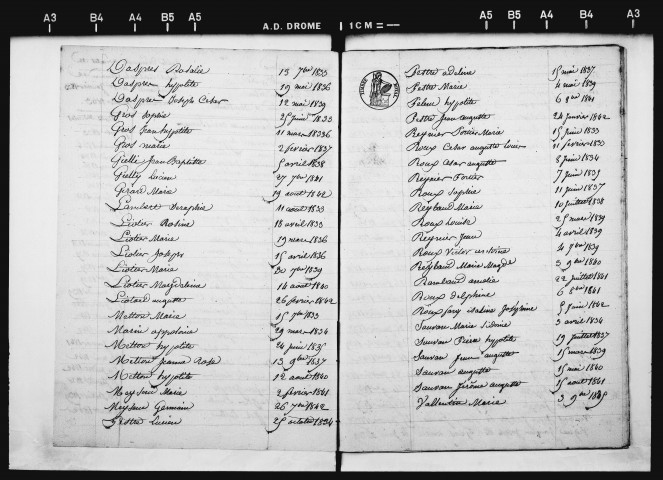 A3 B4 A4 B5 A5 A.D. DROME 1CM = A5 B5 A4 B4 A3
Daspres Rosalie 13 7bre 1833
Daspres hypolite 19 mai 1836
Daspres Joseph Cesar 12 mai 1839
Gros Sophie 25 juin 1833
Gros Jean hypolite 11 mars 1836
Gros marie 2 février 1837
Jean Baptiste 5 avril 1838
27 7bre 1841
Girard Marie 19 aout 1842
Lambert Seraphie 11 aout 1833
Liotier Rosine 18 avril 1833
Liotier Marie 19 mars 1836
Liotier Joseph 15 avril 1836
Liotier Marie 30 7bre 1839
Liotier Magdeleine 14 aout 1840
Liotard augute 26 février 1842
Metton Marie 15 7bre 1833
Marin appolonie 29 mars 1834
Metton hypolite 24 juin 1835
Metton Jeanne Rose 13 9bre 1837
Metton hypolite 12 aout 1840
Meyssin Marie 2 février 1841
Meyssin Germain 26 7bre 1842
Pestre Lucien 25 octobre 1834
Pestre adeline 15 mai 1837
Pestre Marie 4 mai 1839
hypolite 6 1841
Pestre Jean auguste 24 janvier 1842
Reynier Marie 15 juin 1833
Roux Cesar auguste 11 février 1833
Roux Cesar auguste 8 juin 1834
Reynier 7 juin 1835
Roux Sophie 11 juin 1837
Reybaud Marie 10 juillet 1838
Roux Louise 25 mars 1839
Reynier Jean 4 avril 1839
Roux Victor antoine 4 7bre 1839
Reybaud Marie Magde 3 9bre 1840
Rambaud amelie 22 juillet 1841
Roux Delphine 6 8bre 1841
Roux Josephine 5 juin 1842
Sauvan Marie 3 avril 1834
Sauvan Pierre hypolite 19 juillet 1837
Sauvan auguste 15 mars 1839
Sauvan auguste 15 mai 1840
Sauvan Jérôme auguste 15 aout 1841
Vallentin Marie 3 9bre 1835